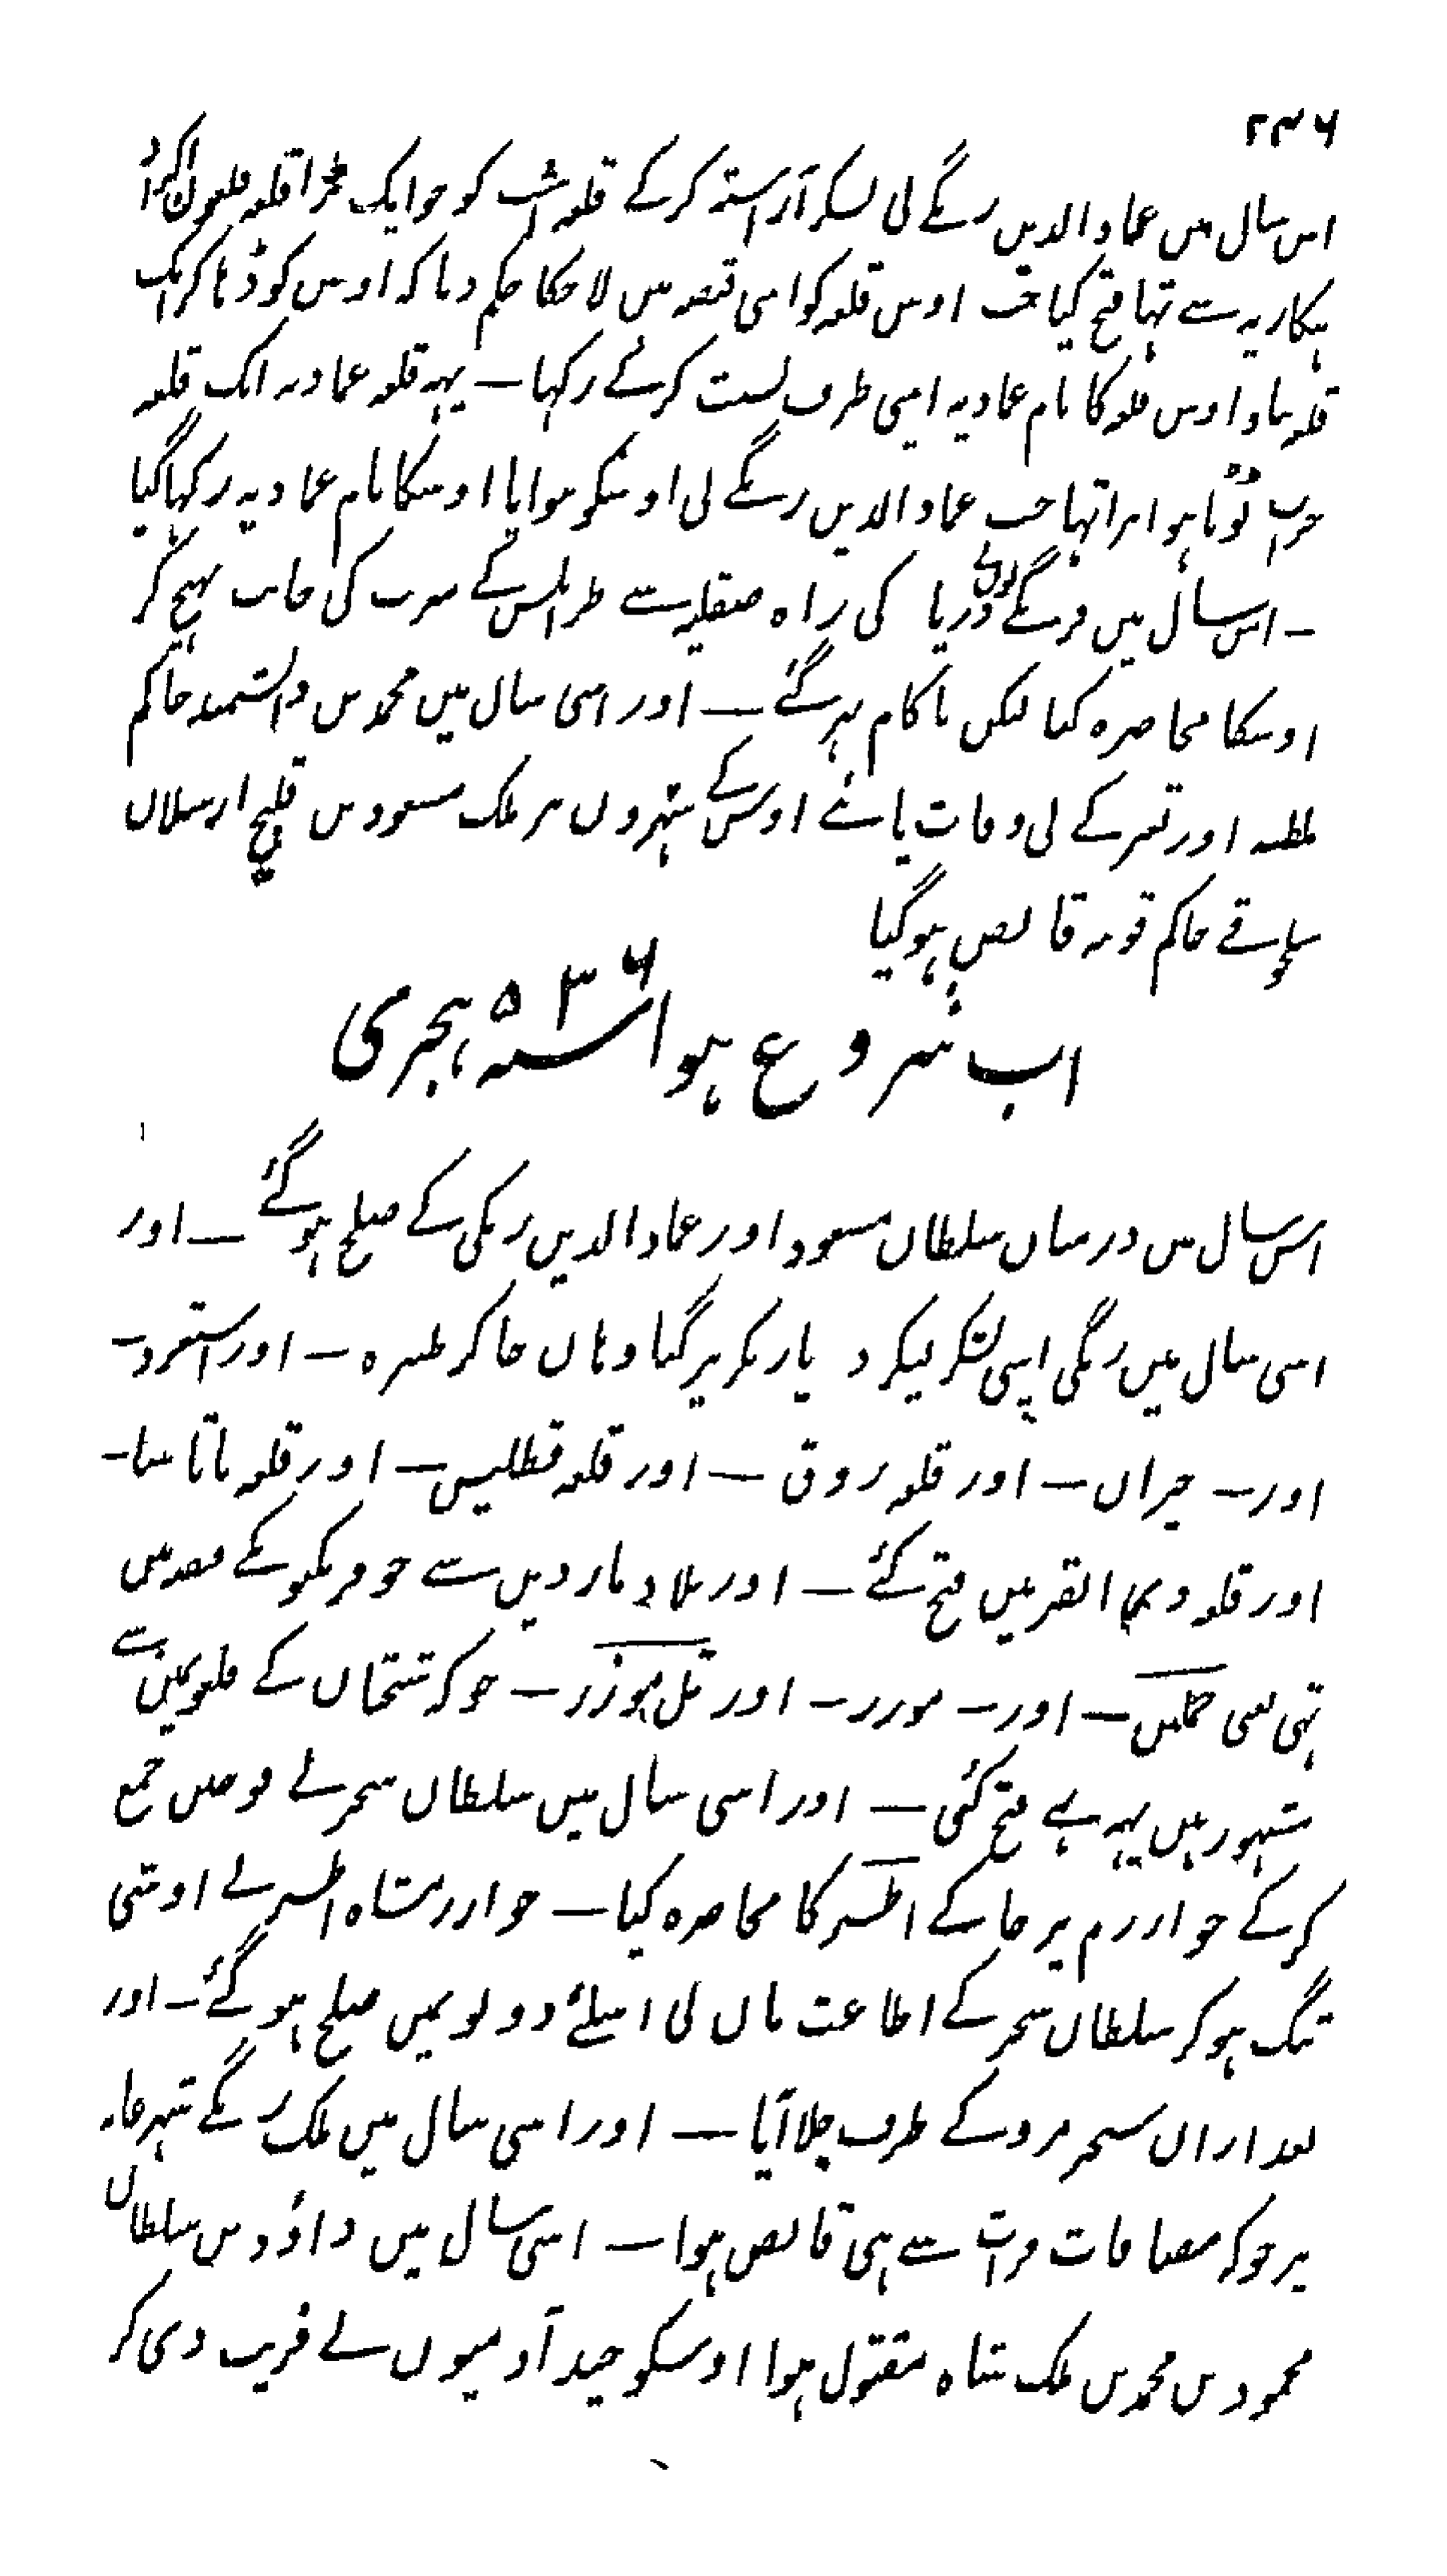 ۲۳۶
اس سال میں عماد الدین زنگے نی لشکر آراستہ کرکے قلعہ اشب کو جو ایک بڑا قلعہ قلعون اکراد
ہکاریہ سے تہا فتح کیا جب اوس قلعہ کو اپنی قبضہ میں لا چکا حکم دیا کہ اوس کو ڈہا کر ایک
قلعہ بناو اوس قلعہ کا نام عمادیہ اپنی طرف نسبت کرکے رکہا — یہہ قلعہ عمادیہ ایک قلعہ
خراب ٹوٹا ہوا پڑا تہا جب عماد الدین زنگے نی اوسکو بنوایا اوسکا نام عمادیہ رکہا گیا
— اس سال میں فرنگے لوگ دریا کی راہ صقلیہ سے طرابلس کے غرب کی جانب پہنچ کر
اوسکا محاصرہ کیا لیکن ناکام پہر گئے — اور اسی سال میں محمد بن دانشمند حاکم
ملطیہ اور ثغر کے نی وفات پائے اوس کے شہروں پر ملک مسعود بن قلیج ارسلان
سلجوقے حاکم قونیہ قابض ہوگیا
اب شروع ہوا سنہ ۵۳۶ ہجری
اس سال میں درمیان سلطان مسعود اور عماد الدین زنگی کے صلح ہوگئے — اور
اسی سال میں زنگی اپنی لشکر لیکر دیار بکر پر گیا وہاں جاکر طنزہ — اور اسعرد —
اور — حیزان — اور قلعہ روق — اور قلعہ قطلیس — اور قلعہ باتاسا —
اور قلعہ ذی القرنین فتح کئے — اور بلاد ماردین سے جو فرنگیو کے قبضہ میں
تہی یعنی حملین — اور — موزر — اور تل موزر — جو کہ شبختان کے قلعو نمیں سے
مشہور ہیں یہہ بہے فتح کئی — اور اسی سال میں سلطان سنجر نے فوجیں جمع
کرکے خوارزم پر جا کے اطسز کا محاصرہ کیا — خوارزمشاہ اطسز نے اوسی
تنگ ہوکر سلطان سنجر کے اطاعت مان لی اسلئے دونو نمیں صلح ہوگئے — اور
بعد ازاں سنجر مرو کے طرف چلا آیا — اور اسی سال میں ملک زنگے شہر عانہ
پر جو کہ مضافات فرات سے ہی قابض ہوا — اسی سال میں داؤد بن سلطان
محمود بن محمد بن ملک شاہ مقتول ہوا اوسکو چند آدمیوں نے فریب دی کر